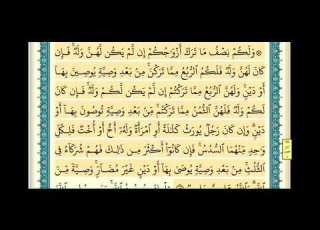 ۞ وَلَكُمْ نِصْفُ مَا تَرَكَ أَزْوَٰجُكُمْ إِن لَّمْ يَكُن لَّهُنَّ وَلَدٌ فَإِن
كَانَ لَهُنَّ وَلَدٌ فَلَكُمُ ٱلرُّبُعُ مِمَّا تَرَكْنَ مِنۢ بَعْدِ وَصِيَّةٍ يُوصِينَ بِهَآ
أَوْ دَيْنٍ وَلَهُنَّ ٱلرُّبُعُ مِمَّا تَرَكْتُمْ إِن لَّمْ يَكُن لَّكُمْ وَلَدٌ فَإِن كَانَ
لَكُمْ وَلَدٌ فَلَهُنَّ ٱلثُّمُنُ مِمَّا تَرَكْتُم مِّنۢ بَعْدِ وَصِيَّةٍ تُوصُونَ بِهَآ أَوْ
دَيْنٍ وَإِن كَانَ رَجُلٌ يُورَثُ كَلَٰلَةً أَوِ ٱمْرَأَةٌ وَلَهُۥٓ أَخٌ أَوْ أُخْتٌ فَلِكُلِّ
وَٰحِدٍ مِّنْهُمَا ٱلسُّدُسُ فَإِن كَانُوٓا۟ أَكْثَرَ مِن ذَٰلِكَ فَهُمْ شُرَكَآءُ فِى
ٱلثُّلُثِ مِنۢ بَعْدِ وَصِيَّةٍ يُوصَىٰ بِهَآ أَوْ دَيْنٍ غَيْرَ مُضَآرٍّ وَصِيَّةً مِّنَ